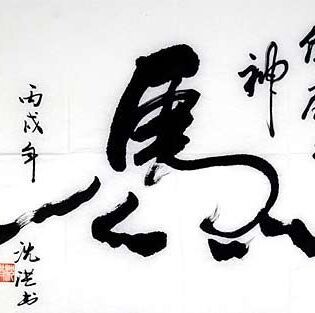 神
馬
丙戌年
沈洪书